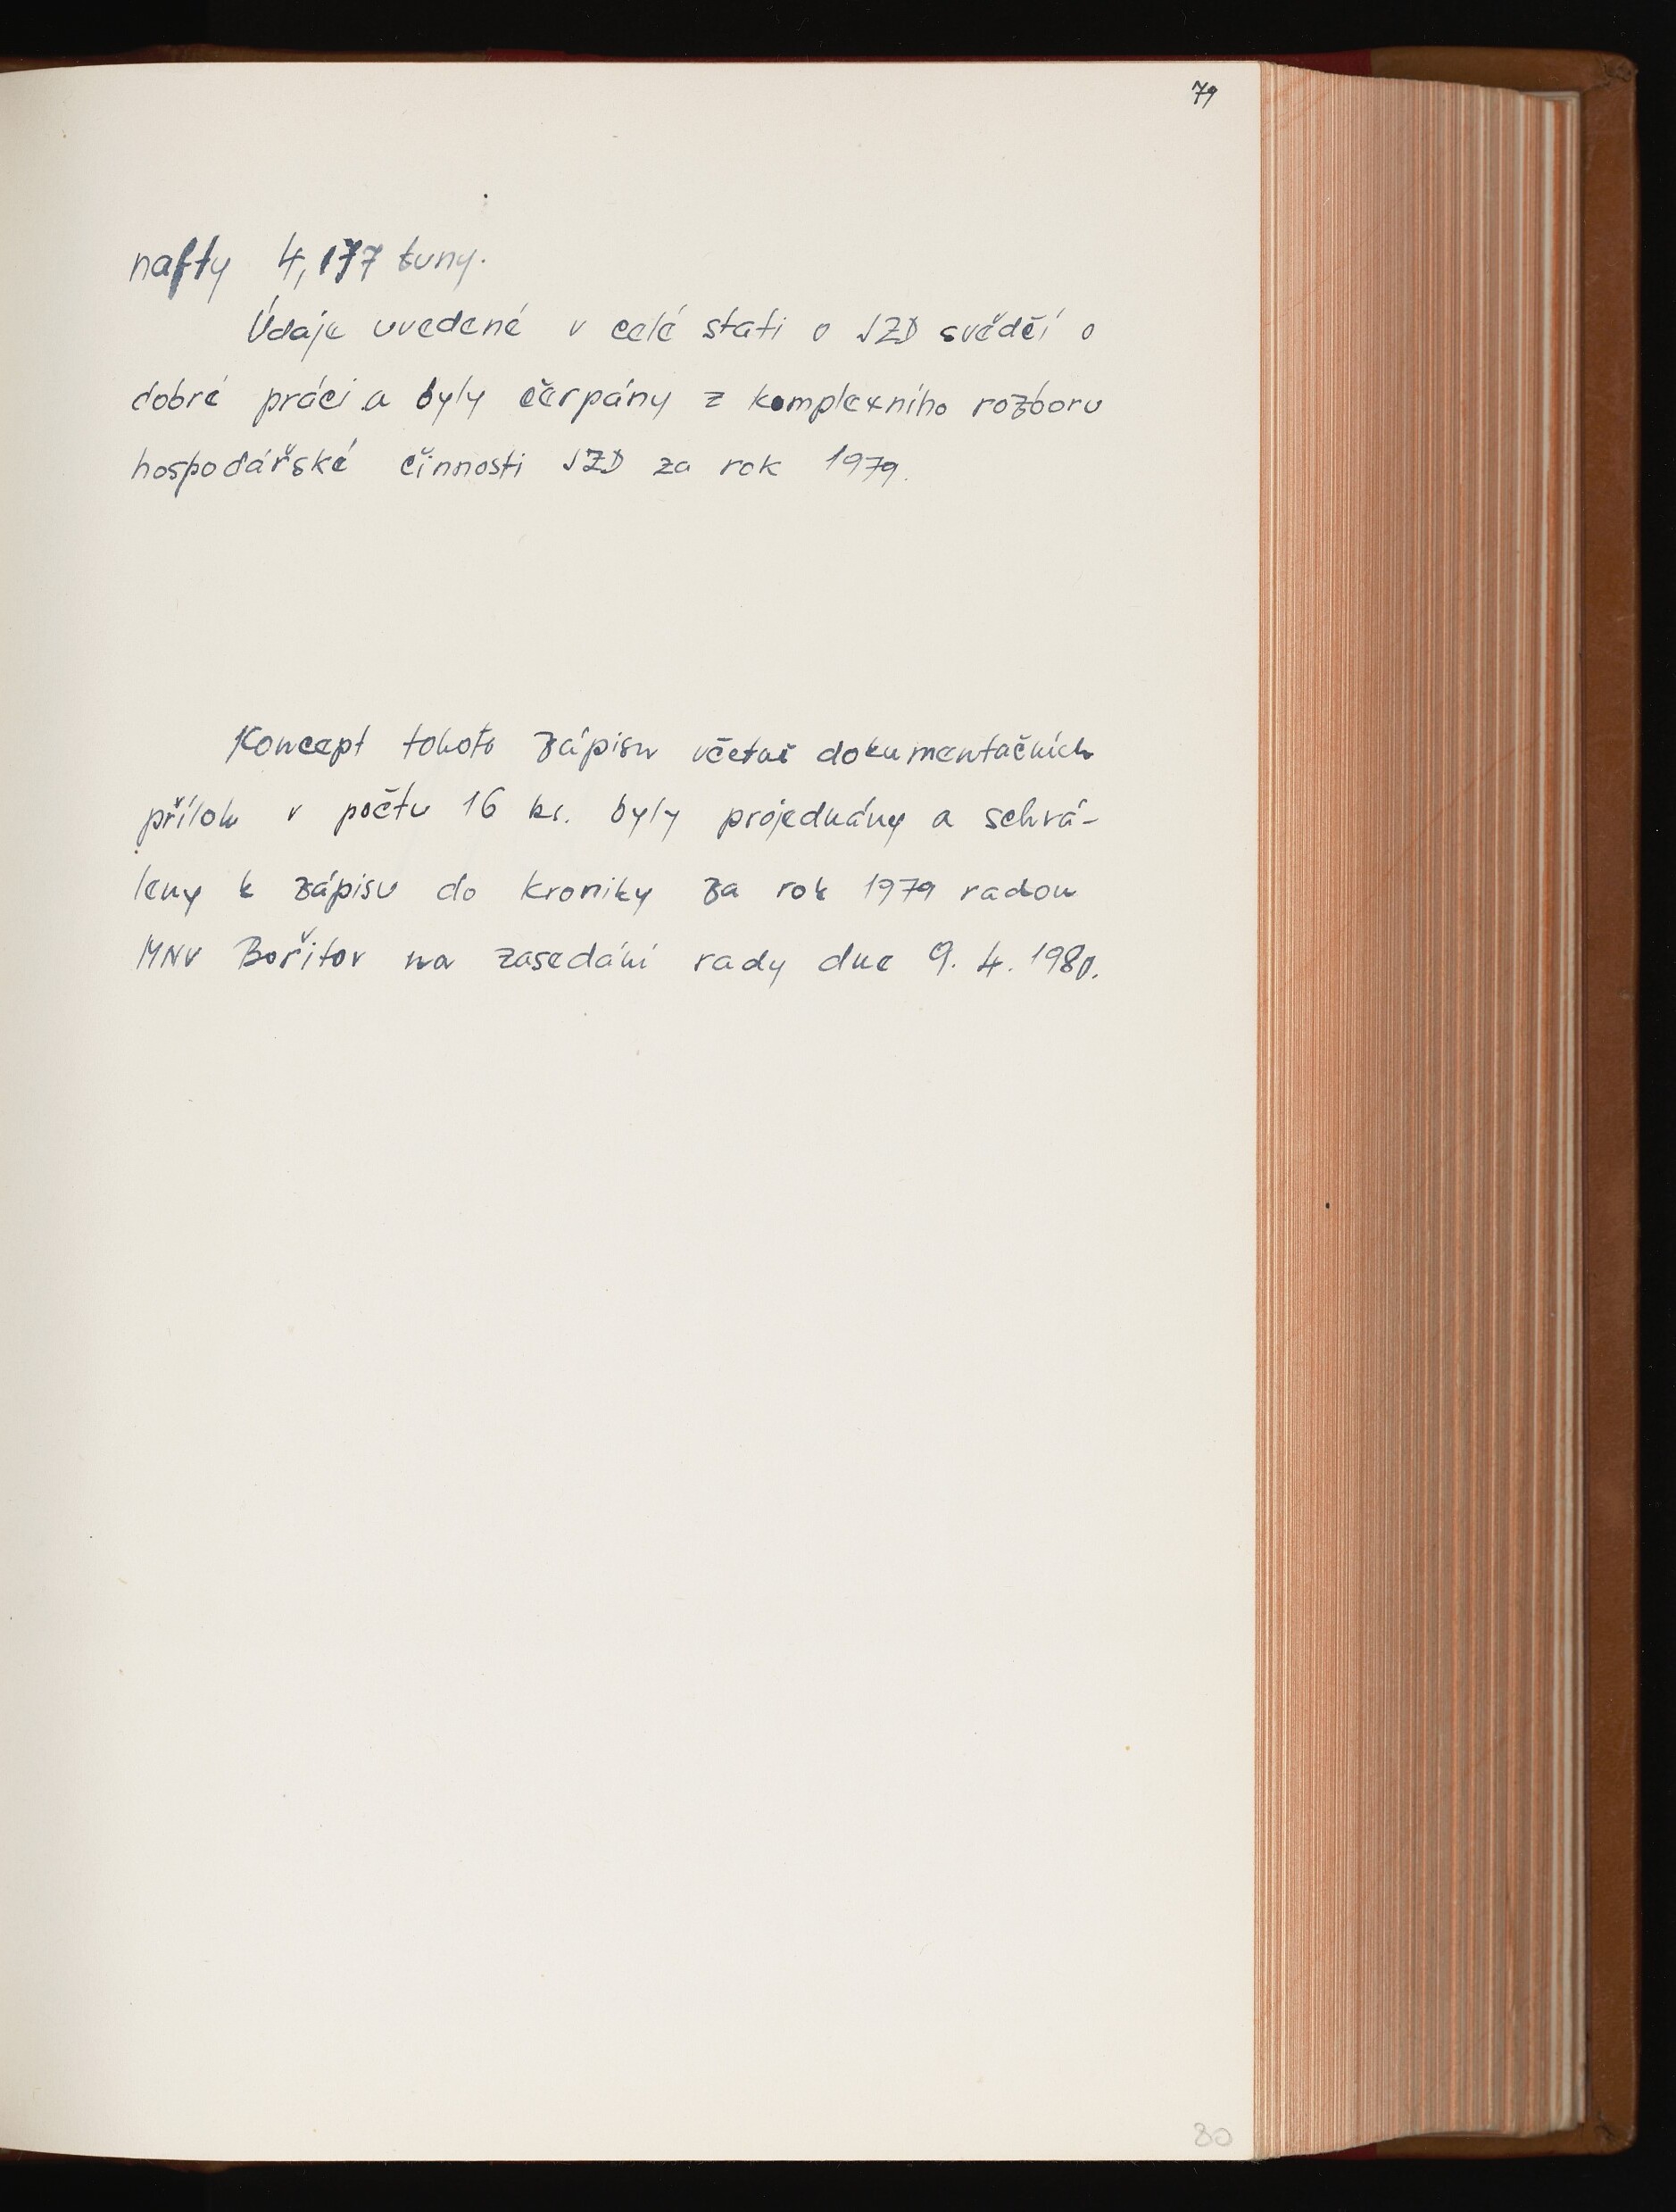 79
nafty 4,177 tuny.
Údaje uvedené v celé stati o JZD svědčí o
dobré práci a byly čerpány z komplexního rozboru
hospodářské činnosti JZD za rok 1979.
Koncept tohoto zápisu včetně dokumentačních
příloh v počtu 16 ks. byly projednány a schvá-
leny k zápisu do kroniky za rok 1979 radou
MNV Bořitov na zasedání rady dne 9. 4. 1980.
80